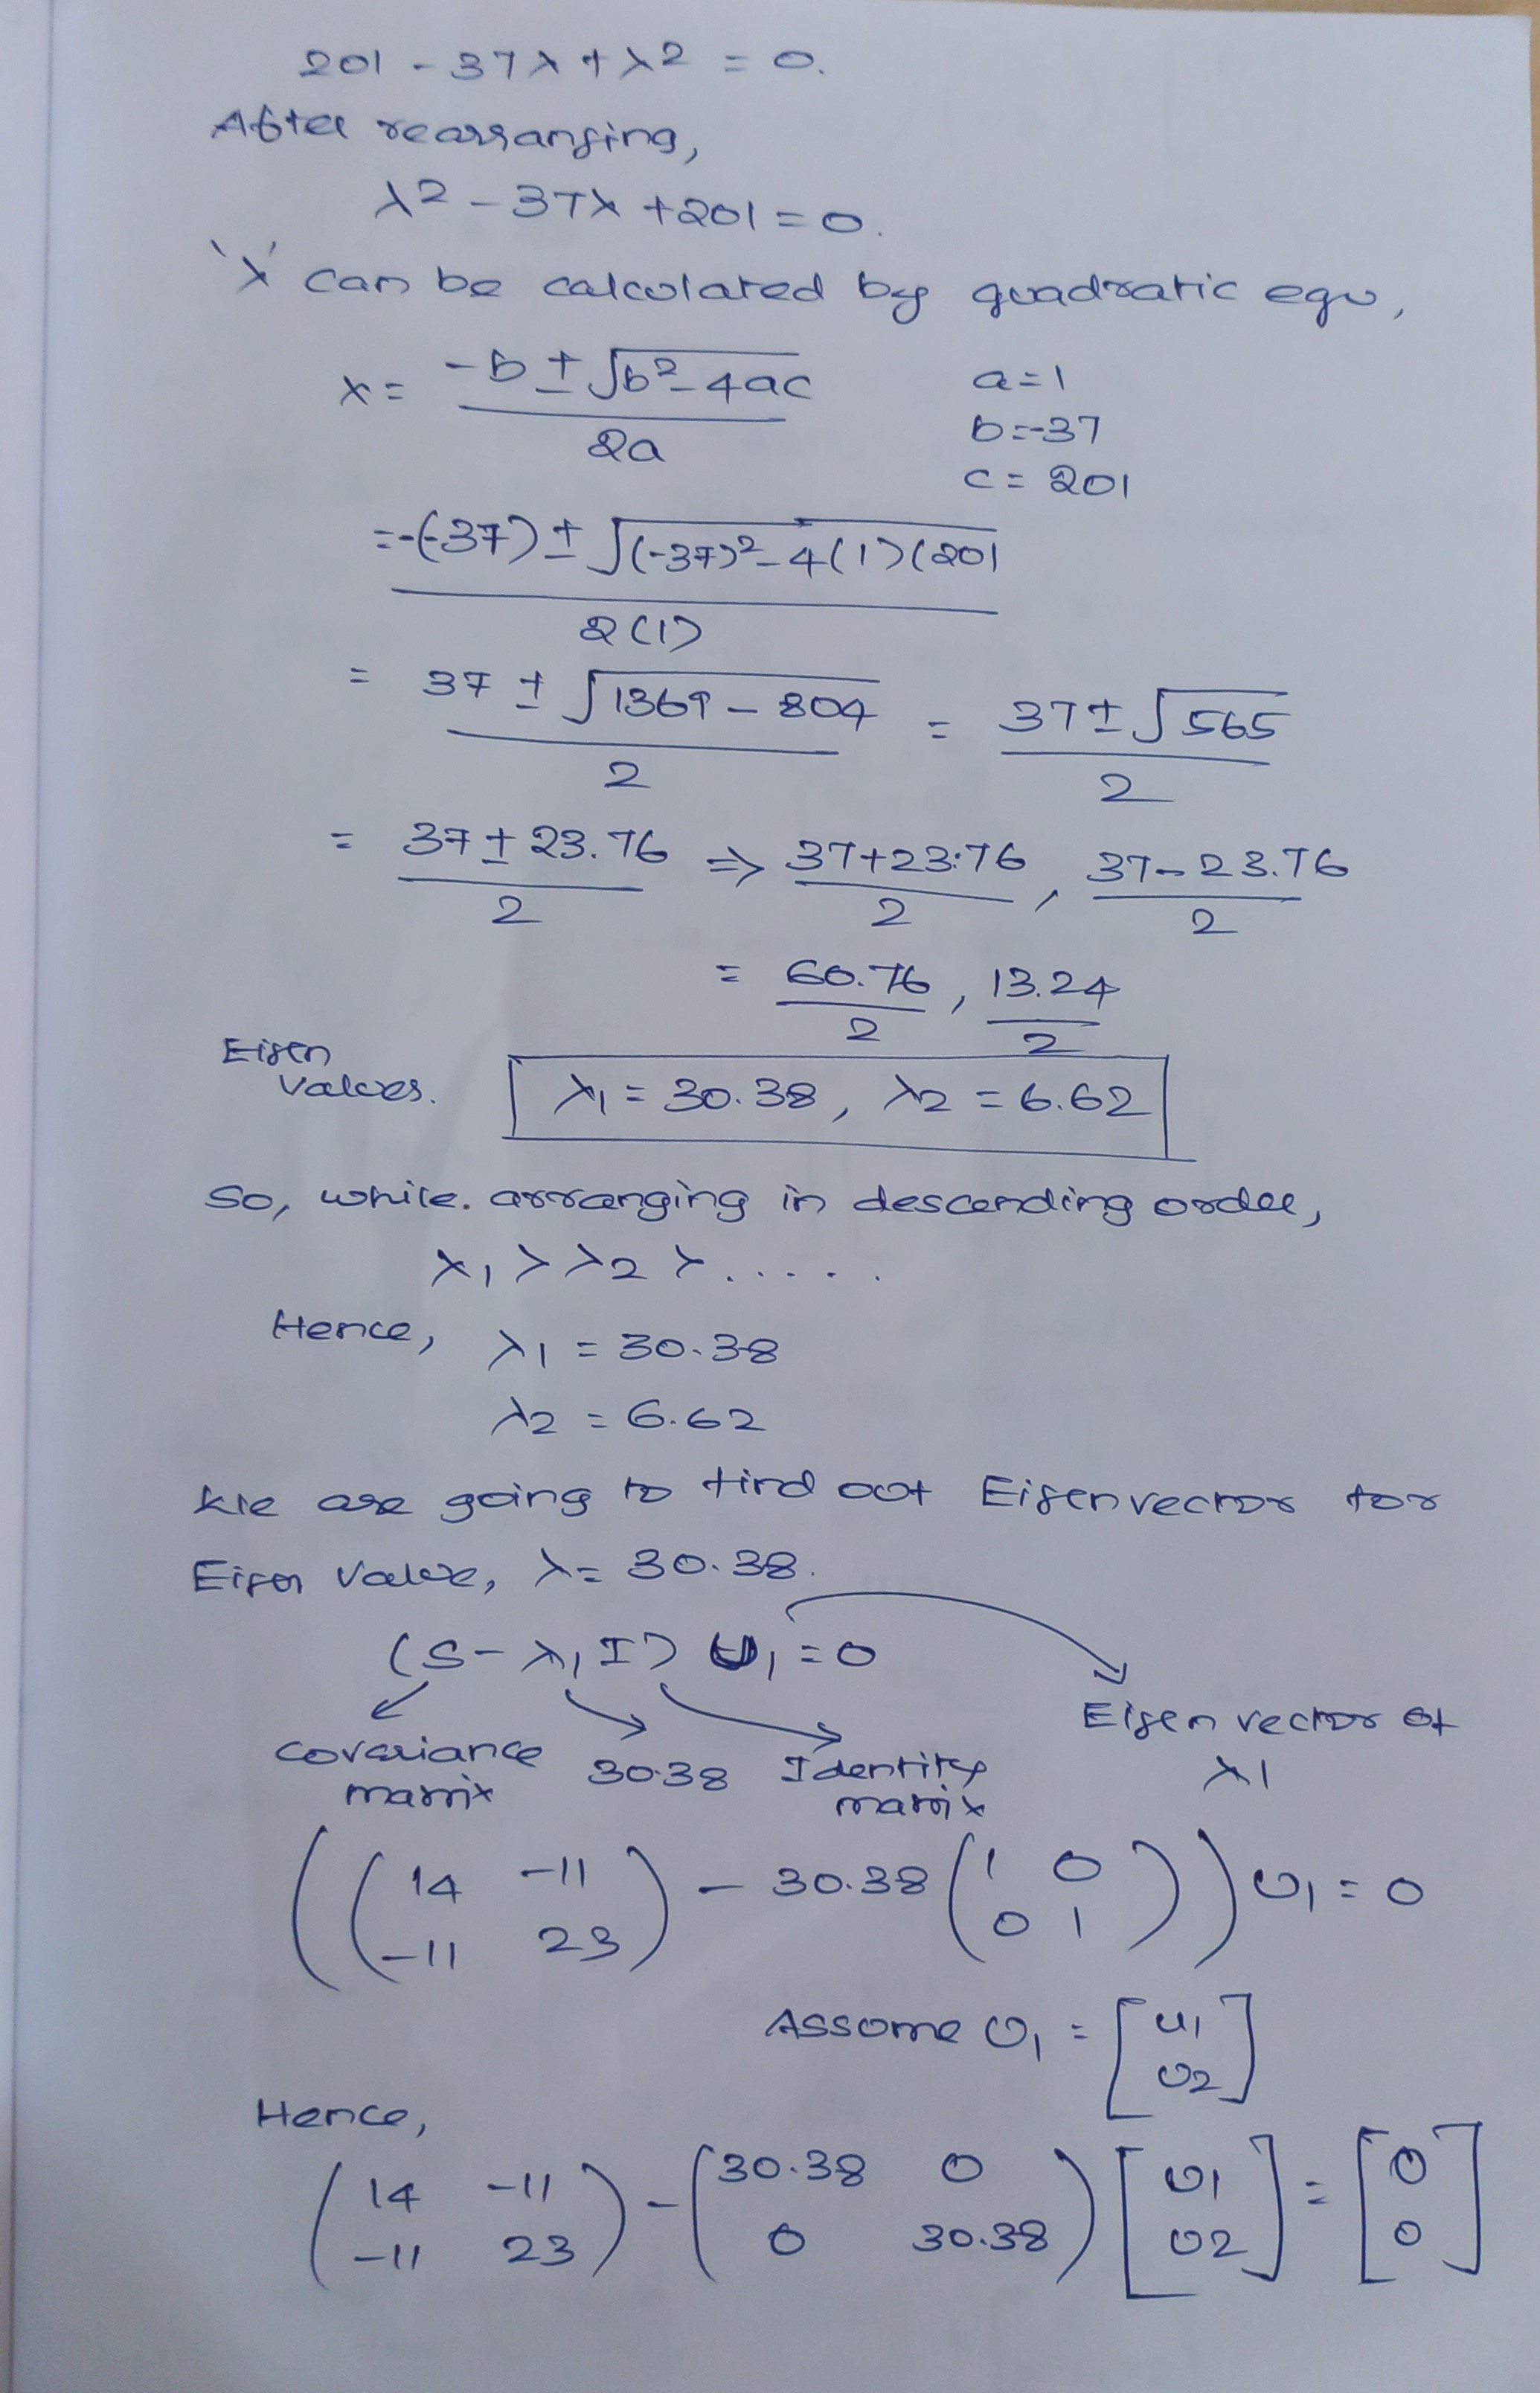 201 - 37λ + λ2 = 0.
After rearranging,
λ2 - 37λ + 201 = 0.
'λ' can be calculated by quadratic equ,
x = -b ± √b² - 4ac / 2a
a = 1
b = -37
c = 201
= -(-37) ± √(-37)² - 4(1)(201 / 2(1)
= 37 ± √1369 - 804 / 2 = 37 ± √565 / 2
= 37 ± 23.76 / 2 ⇒ 37+23.76 / 2 , 37-23.76 / 2
= 60.76 / 2 , 13.24 / 2
Eigen
Values.
λ1 = 30.38, λ2 = 6.62
So, while. arranging in descending order,
λ1 > λ2 > .....
Hence, λ1 = 30.38
λ2 = 6.62
We are going to find out Eigenvector for
Eigen Value, λ = 30.38.
(S - λ1 I) U1 = 0
Eigen vector of
λ1
covariance
matrix
30.38
Identity
matrix
((14 -11
-11 23) - 30.38 (1 0
0 1)) U1 = 0
Assume U1 = [u1
u2]
Hence,
(14 -11
-11 23) - (30.38 0
0 30.38) [u1
u2] = [0
0]